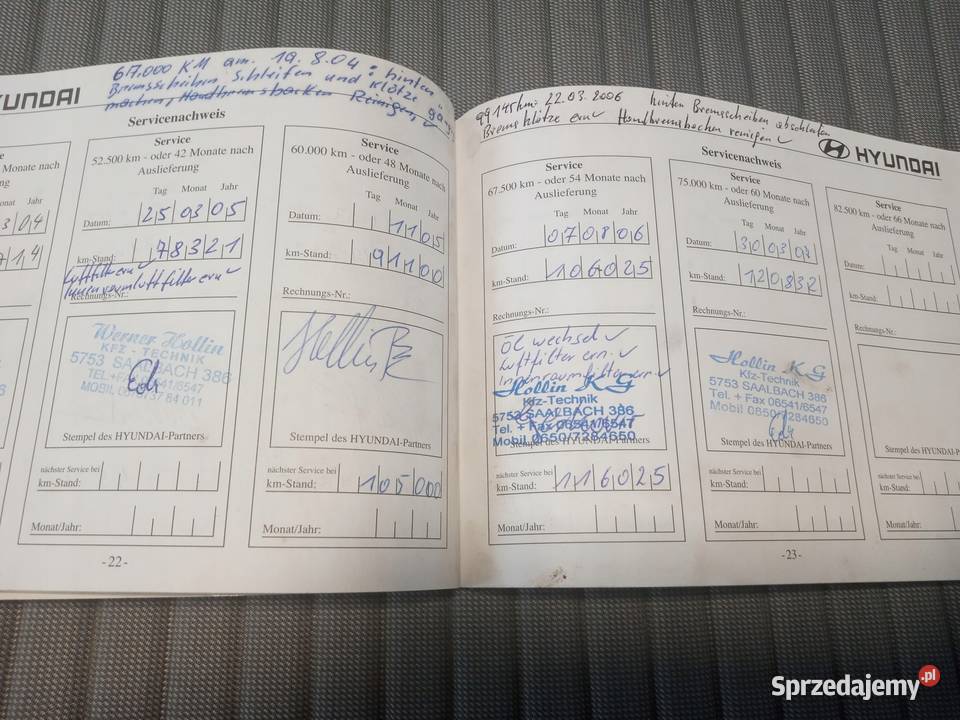 67.000 KM am. 19.8.04: hinten
Bremsscheiben Schleifen und Klötze
machen, Handbremsbacken Reinigen,
HYUNDAI
Servicenachweis
Service
Monate nach
304
714
Service
52.500 km - oder 42 Monate nach
Auslieferung
Tag Monat Jahr
Datum: 250305
km-Stand: 78321
Luftfilter ern
Innenraumluftfilter ern
Rechnungs-Nr.:
Werner Hollin
KFZ - TECHNIK
5753 SAALBACH 386
TEL.+FAX 06541/6547
Stempel des HYUNDAI-Partners
nächster Service bei
km-Stand:
Monat/Jahr:
Service
60.000 km - oder 48 Monate nach
Auslieferung
Tag Monat Jahr
Datum: 1105
km-Stand: 91100
Rechnungs-Nr.:
Stempel des HYUNDAI-Partners
nächster Service bei
km-Stand: 105000
Monat/Jahr:
-22-
99145km: 22.03.2006 hinten Bremsscheiben abschleifen
Bremsklötze ern Handbremsbacken reinigen
HYUNDAI
Servicenachweis
Service
67.500 km - oder 54 Monate nach
Auslieferung
Tag Monat Jahr
Datum: 070806
km-Stand: 106025
Rechnungs-Nr.:
Öl wechsel
Luftfilter ern.
Innenraumfilter ern.
Hollin KG
Kfz-Technik
5753 SAALBACH 386
Tel. + Fax 06541/6547
Mobil 0650/7284650
Stempel des HYUNDAI-Partners
nächster Service bei
km-Stand: 116025
Monat/Jahr:
Service
75.000 km - oder 60 Monate nach
Auslieferung
Tag Monat Jahr
Datum: 300307
km-Stand: 120832
Rechnungs-Nr.:
Hollin KG
Kfz-Technik
5753 SAALBACH 386
Tel. + Fax 06541/6547
Mobil 0650/7284650
Stempel des HYUNDAI-Partners
nächster Service bei
km-Stand:
Monat/Jahr:
Service
82.500 km - oder 66 Monate nach
Auslieferung
Tag Monat Jahr
Datum:
km-Stand:
Rechnungs-Nr.:
Stempel des HYUNDAI-P
nächster Service bei
km-Stand:
Monat/Jahr:
-23-
Sprzedajemy.pl